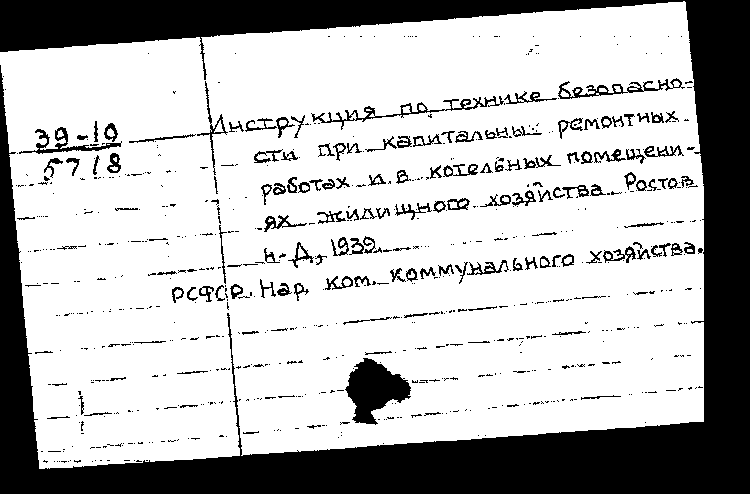 39-10
5718
Инструкция по технике безопасно-
сти при капитальных ремонтных
работах и в котельных помещени-
ях жилищного хозяйства. Ростов
н-Д., 1939.
РСФСР. Нар. ком. коммунального хозяйства.